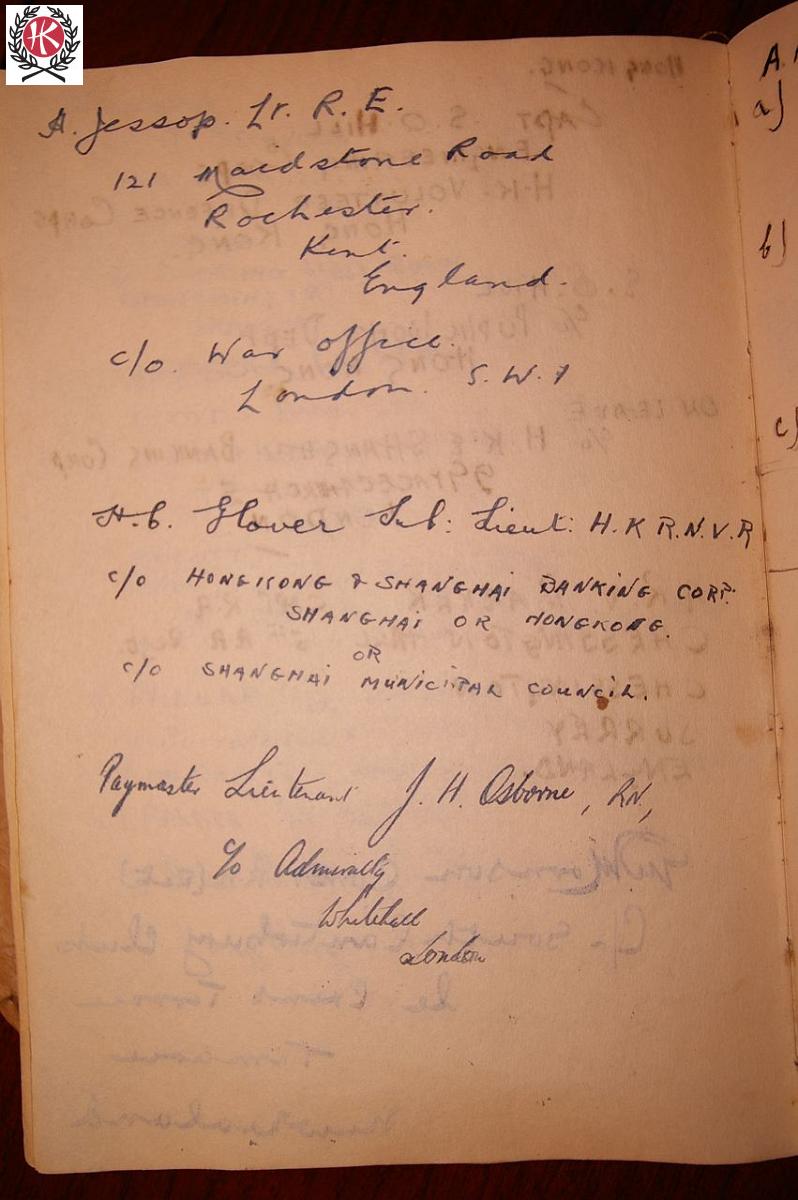 A. Jessop. Lt. R. E.
121 Maidstone Road
Rochester.
Kent.
England.
c/o. War office.
London. S.W.1
H.C. Glover Sub: Lieut: H.K R.N.V.R
c/o HONGKONG & SHANGHAI BANKING CORP.
SHANGHAI OR HONGKONG.
OR
c/o SHANGHAI MUNICIPAL COUNCIL.
Paymaster Lieutenant J. H. Osborne, RN,
c/o Admiralty
Whitehall
London
A.
a)
b)
c)
HK